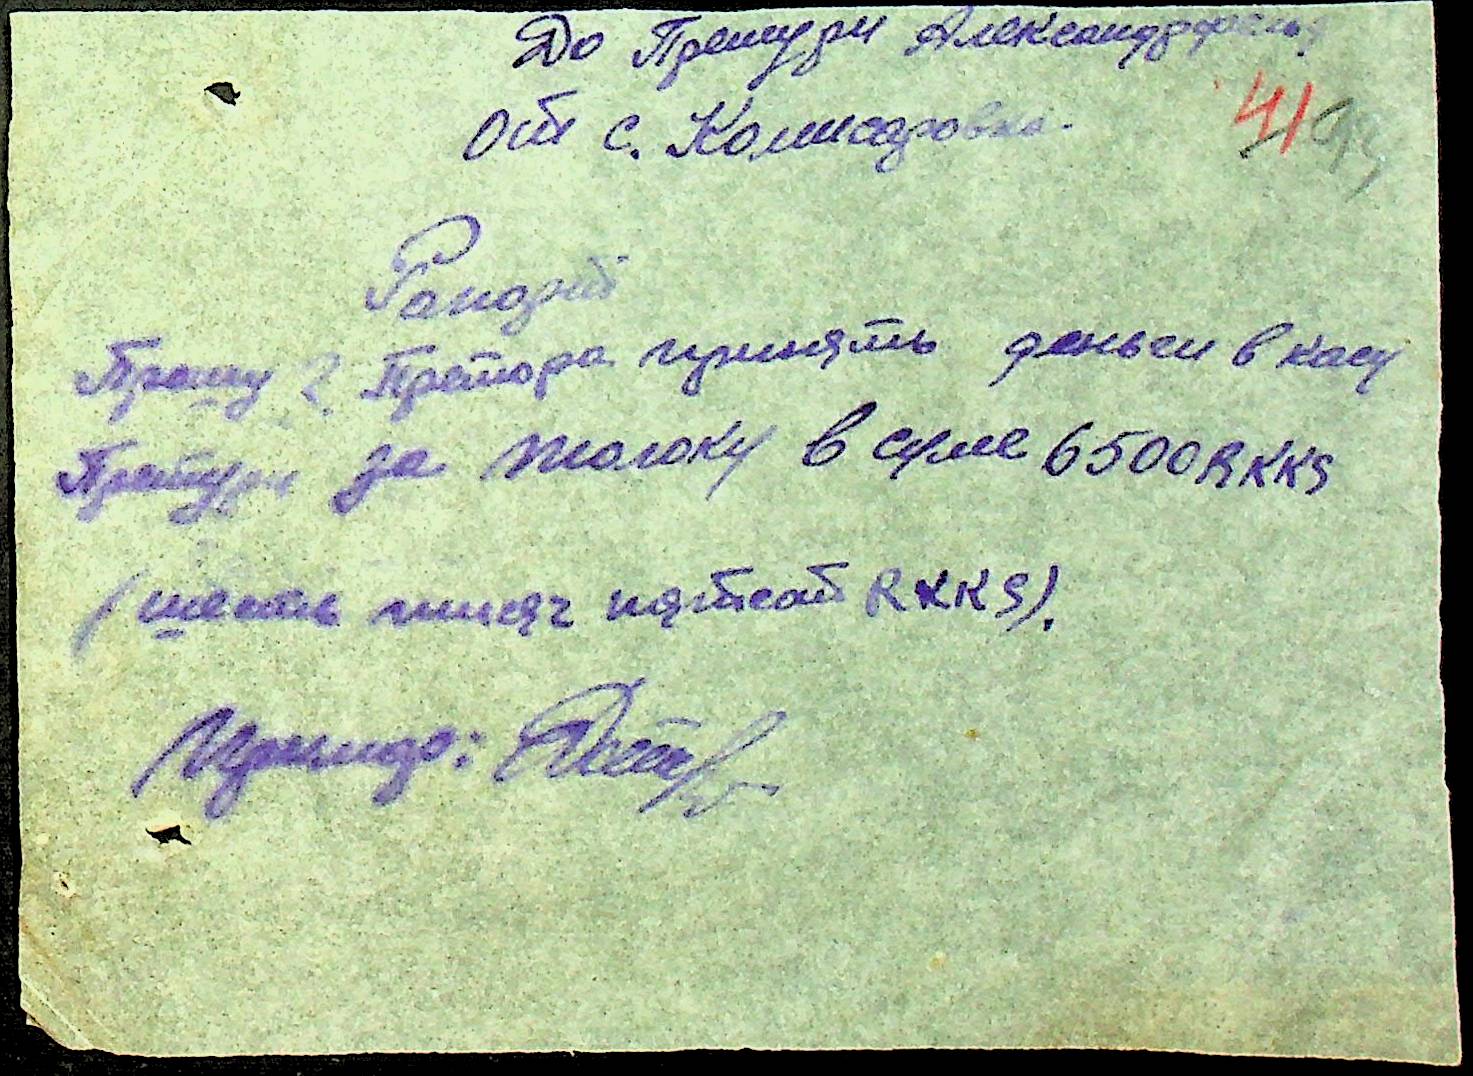 До Претури Александрфельд
От с. Комисаровка.
41
Рапорт
Прошу г. Претора принять деньги в касу
Претури за толоку в суме 6500 RKKS
(шесть тисяч пятсот RKKS).
Примар: